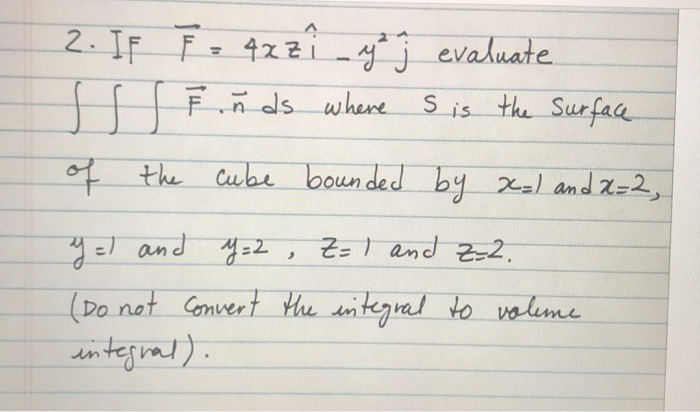 2. IF F⃗ = 4xz î - y² ĵ evaluate
∫∫∫ F⃗ . n̄ ds where S is the Surface
of the cube bounded by x=1 and x=2,
y=1 and y=2, z=1 and z=2.
(Do not Convert the integral to volume
integral).